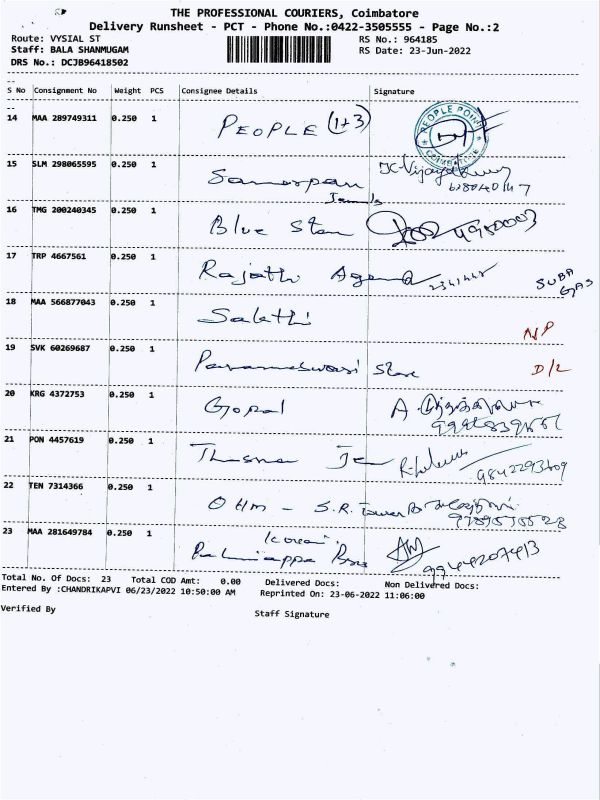 THE PROFESSIONAL COURIERS, Coimbatore
Delivery Runsheet - PCT - Phone No.:0422-3505555 - Page No.:2
Route: VYSIAL ST
RS No.: 964185
Staff: BALA SHANMUGAM
RS Date: 23-Jun-2022
DRS No.: DCJB96418502
S No Consignment No Weight PCS Consignee Details Signature
14 MAA 289749311 0.250 1 PEOPLE (1+3)
PEOPLE POINT COIMBATORE
15 SLM 298065595 0.250 1
16 TMG 200240345 0.250 1 Blue Star
17 TRP 4667561 0.250 1 Rajathi SUBA GAS
18 MAA 566877043 0.250 1 Salethi NP
19 SVK 60269687 0.250 1 Parameswari Store D/L
20 KRG 4372753 0.250 1 Gopal A
21 PON 4457619 0.250 1
22 TEN 7314366 0.250 1 OHM - S.R. Tower
23 MAA 281649784 0.250 1
Total No. Of Docs: 23 Total COD Amt: 0.00 Delivered Docs: Non Delivered Docs:
Entered By :CHANDRIKAPVI 06/23/2022 10:50:00 AM Reprinted On: 23-06-2022 11:06:00
Verified By
Staff Signature